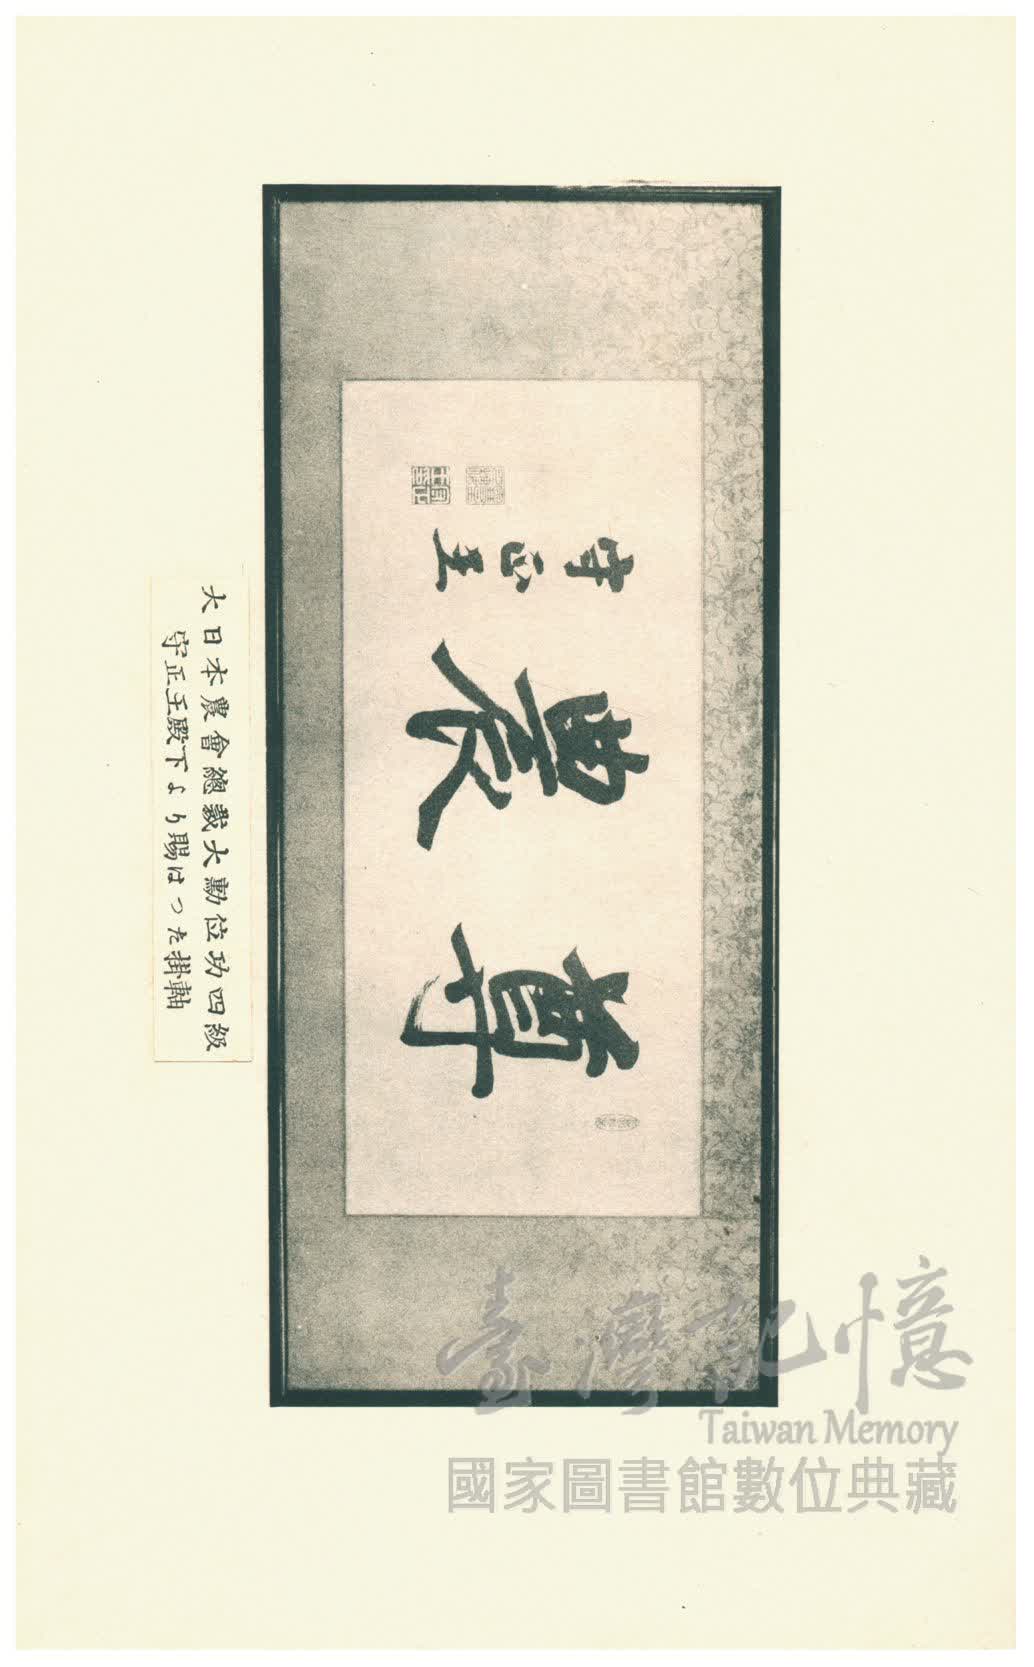 尊農
守正王
大日本農會總裁大勳位功四級
守正王殿下より賜はつた掛軸
臺灣記憶
Taiwan Memory
國家圖書館數位典藏